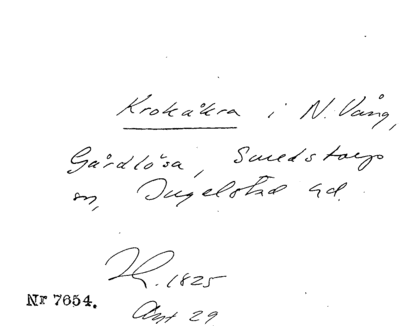 Krokåkra i N. Vång,
Gårdlösa, Smedstorps
sn, Ingelstad hd.
H. 1825
Akt 29
Nr 7654.